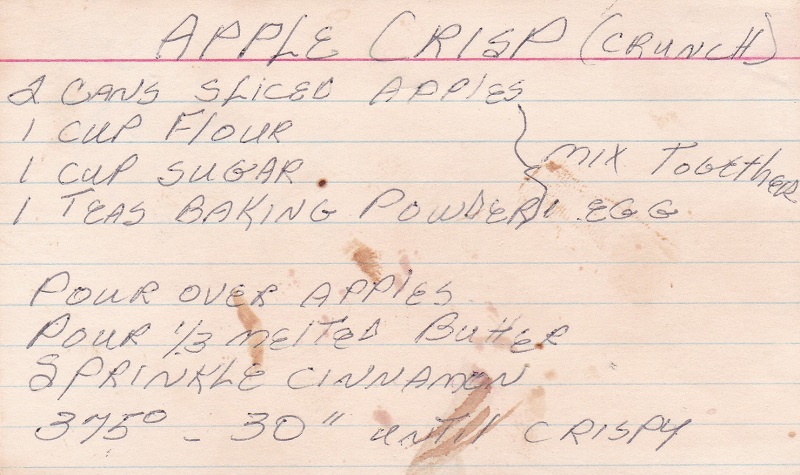 APPLE CRISP (CRUNCH)
2 CANS SLICED APPLES
1 CUP FLOUR
1 CUP SUGAR
MIX TOGETHER
1 TEAS BAKING POWDER 1 EGG
POUR OVER APPLES
POUR 1/3 MELTED BUTTER
SPRINKLE CINNAMON
375° - 30" UNTIL CRISPY